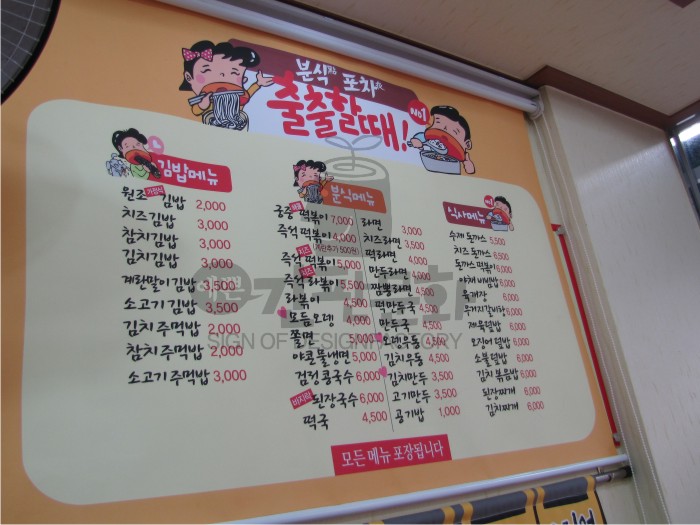 분식 포차
출출할때!
No1
김밥메뉴
원조 김밥 2,000
치즈김밥 3,000
참치김밥 3,000
김치김밥 3,000
계란말이김밥 3,500
소고기김밥 3,500
김치주먹밥 2,000
참치주먹밥 2,000
소고기주먹밥 3,000
분식메뉴
궁중 떡볶이 7,000
즉석 떡볶이 4,000
즉석 떡볶이 5,000
즉석 라볶이 5,500
라볶이 4,500
모듬오뎅 4,000
쫄면 5,000
야콘물냉면 5,000
검정콩국수 6,000
바지락 된장국수 6,000
떡국 4,500
라면 3,000
치즈라면 3,500
떡라면 4,000
만두라면 4,000
짬뽕라면 4,500
떡만두국 4,500
만두국 4,500
오뎅우동 4,500
김치우동 4,500
김치만두 3,500
고기만두 3,500
공기밥 1,000
식사메뉴
수제 돈까스 5,500
치즈 돈까스 6,500
돈까스 떡볶이 6,000
야채비빔밥 6,000
육개장 6,000
우거지갈비탕 6,000
제육덮밥 6,000
오징어덮밥 6,000
소불덮밥 6,000
김치볶음밥 6,000
된장찌개 6,000
김치찌개 6,000
모든 메뉴 포장됩니다
SIGN OF DESIGN FACTORY